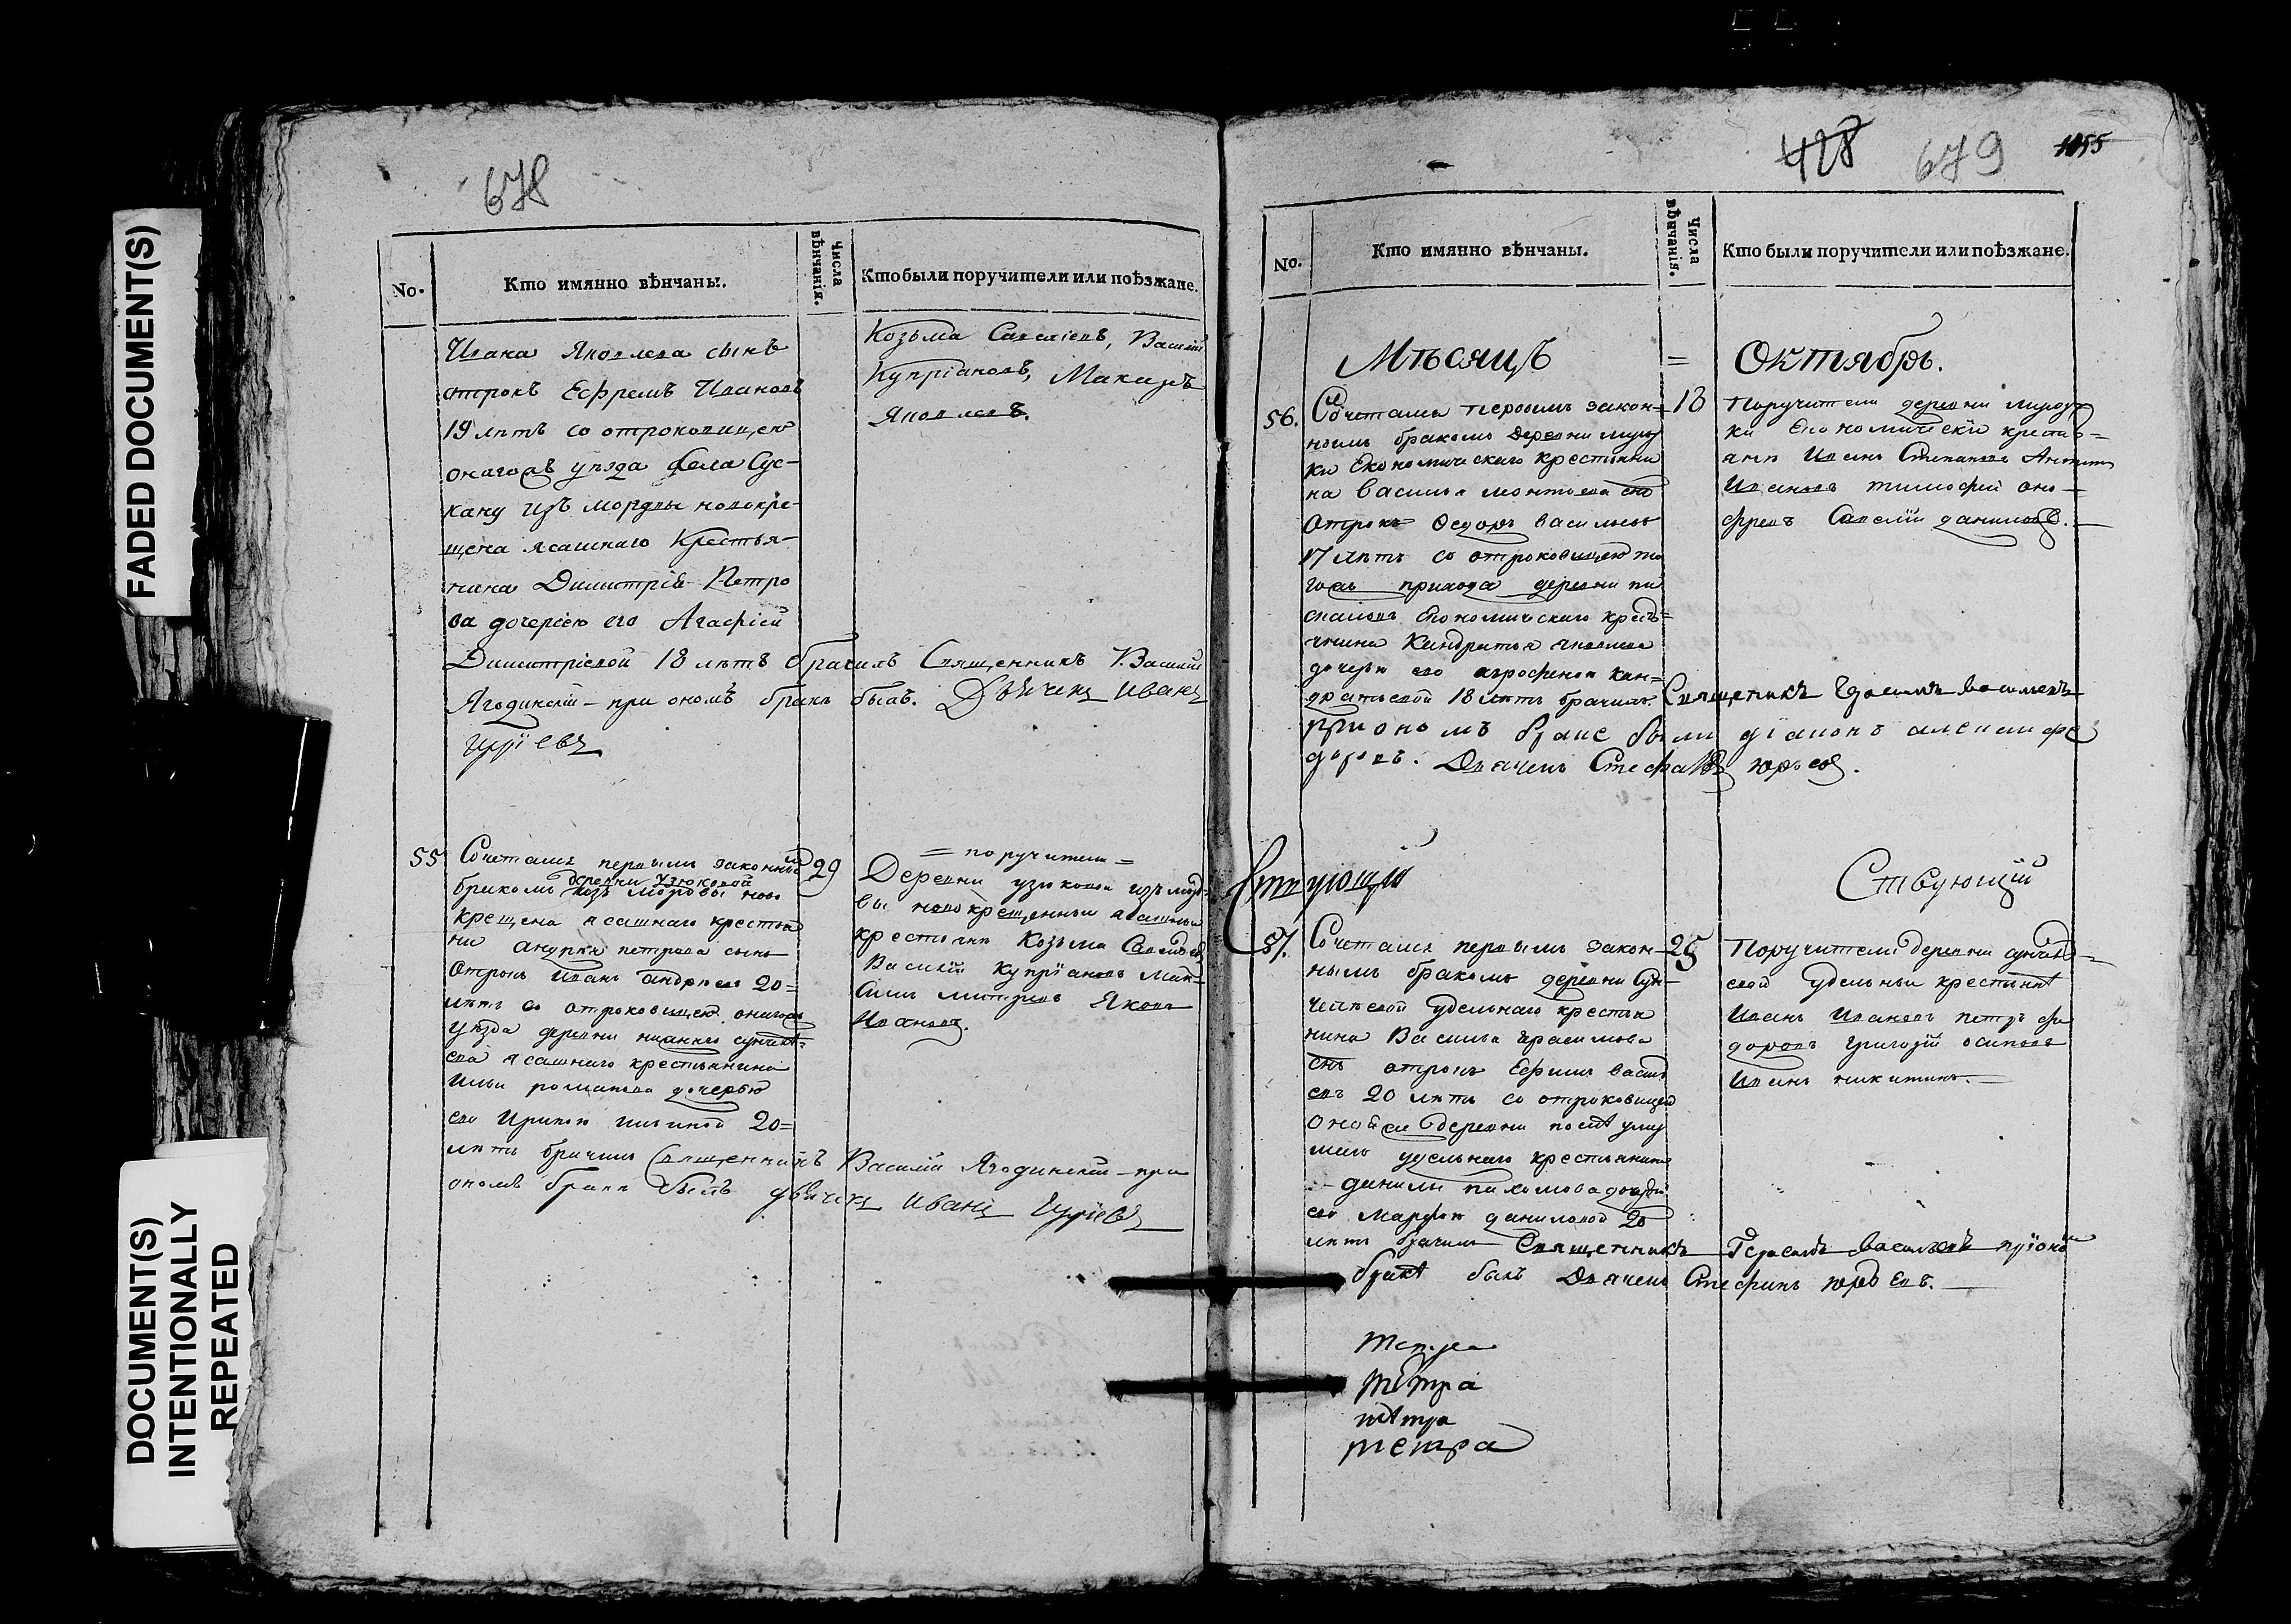 FADED DOCUMENT(S)
DOCUMENT(S)
INTENTIONALLY
REPEATED
678
No.
Кто имянно вѣнчаны.
Числа
вѣнчанія.
Кто были поручители или поѣзжане.
Ивана Яковлева сынъ
отрокъ Ефремъ Ивановъ
19 лѣтъ со отроковицею
онагожъ уѣзда села Сус-
кану изъ мордвы новокре-
щена ясашнаго Крестья-
нина Димитрія Петро
ва дочерею его Агафіей
Димитріевой 18 лѣтъ брачилъ Священникъ Василий
Ягодинский - при ономъ бракѣ былъ. Дьячекъ Иванъ
Гуріевъ
Козьма Савеліевъ, Василий
Купріановъ, Макаръ
Яковлевъ.
55
Сочетался первымъ законны
29
деревни узюковой
бракомъ изъ мордвы ново
крещена ясашнаго крестья
петрова сынъ
отрокъ Иванъ андреевъ 20=
лѣтъ со отроковицею онагожъ
уѣзда деревни
ева ясашнаго крестьянина
Ильи романова дочерью
его Ириною ильиной 20=
лѣтъ брачилъ Священникъ Василий Ягодинский - при
ономъ бракѣ былъ дьячекъ Иванъ Гуріевъ
= поручители =
Деревни узюковой изъ морд-
вы новокрещенныи ясашныи
крестьяне Козьма
Василий Купріановъ
Яковъ
Ивановъ.
428
679
1055
No.
Кто имянно вѣнчаны.
Числа
вѣнчанія.
Кто были поручители или поѣзжане.
Мѣсяцъ = Октябрь.
56.
Сочетался первымъ закон=
18
нымъ бракомъ деревни
ки Економическаго крестьяни
на василья леонтьева снъ
отрокъ Ѳедоръ васильевъ
17 лѣтъ со отроковицею то
гожъ прихода деревни
Економическаго кресть=
янина Кандратья яковлева
дочерью его агрофеною кан=
дратьевой 18 лѣтъ брачилъ Священникъ Герасимъ васильевъ
при ономъ браке были діаконъ алексей фе
доровъ. Дьячекъ Стефанъ юрьевъ.
Поручители деревни
ки Економически крестья=
яне Иванъ Степановъ
Ивановъ тимофей оно-
фреевъ Савелій даниловъ.
Ствующій
Ствующій
57.
Сочетался первымъ закон-
25
нымъ бракомъ деревни Сун-
чел­еевой удельнаго крестья
нина Василья Герасимова
снъ отрокъ Ефимъ василь
евъ 20 лѣтъ со отроковицею
оной же деревни послѣ умер
шаго удельнаго крестьянина
данилы пахомова дочерью
его Марфою даниловой 20
лѣтъ брачилъ Священникъ Герасимъ васильевъ при оно
бракѣ былъ Дьячекъ Стефанъ юрьевъ.
Поручители деревни
евой удельныи крестьяне
Иванъ Ивановъ петръ фе
доровъ григорій осиповъ
Иванъ никитинъ.
петра
петра
петра